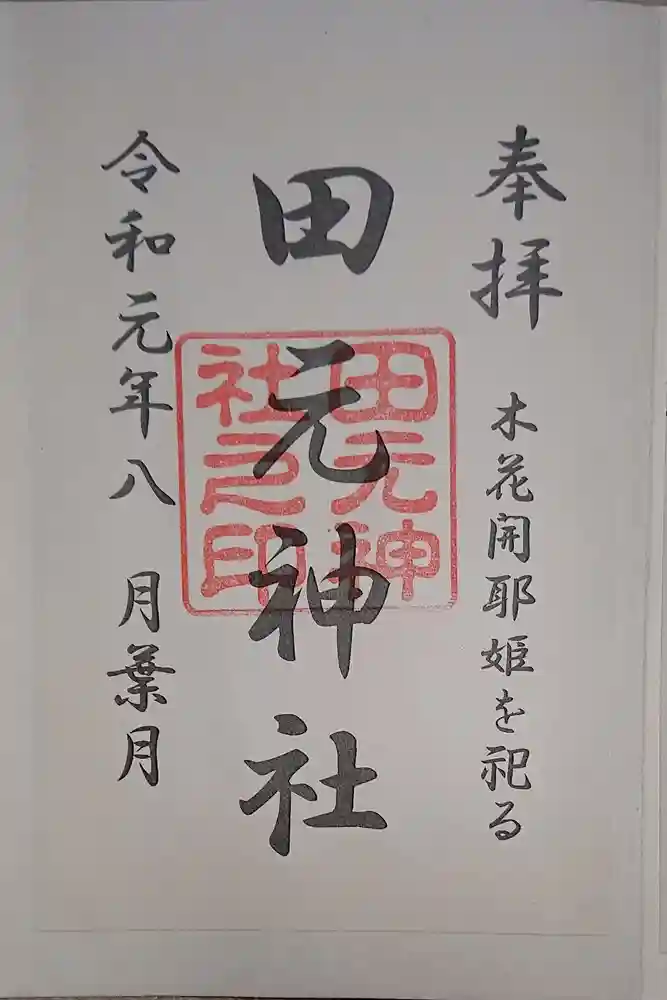 奉拝
木花開耶姫を祀る
田元神社
田元神
社之印
令和元年八月葉月